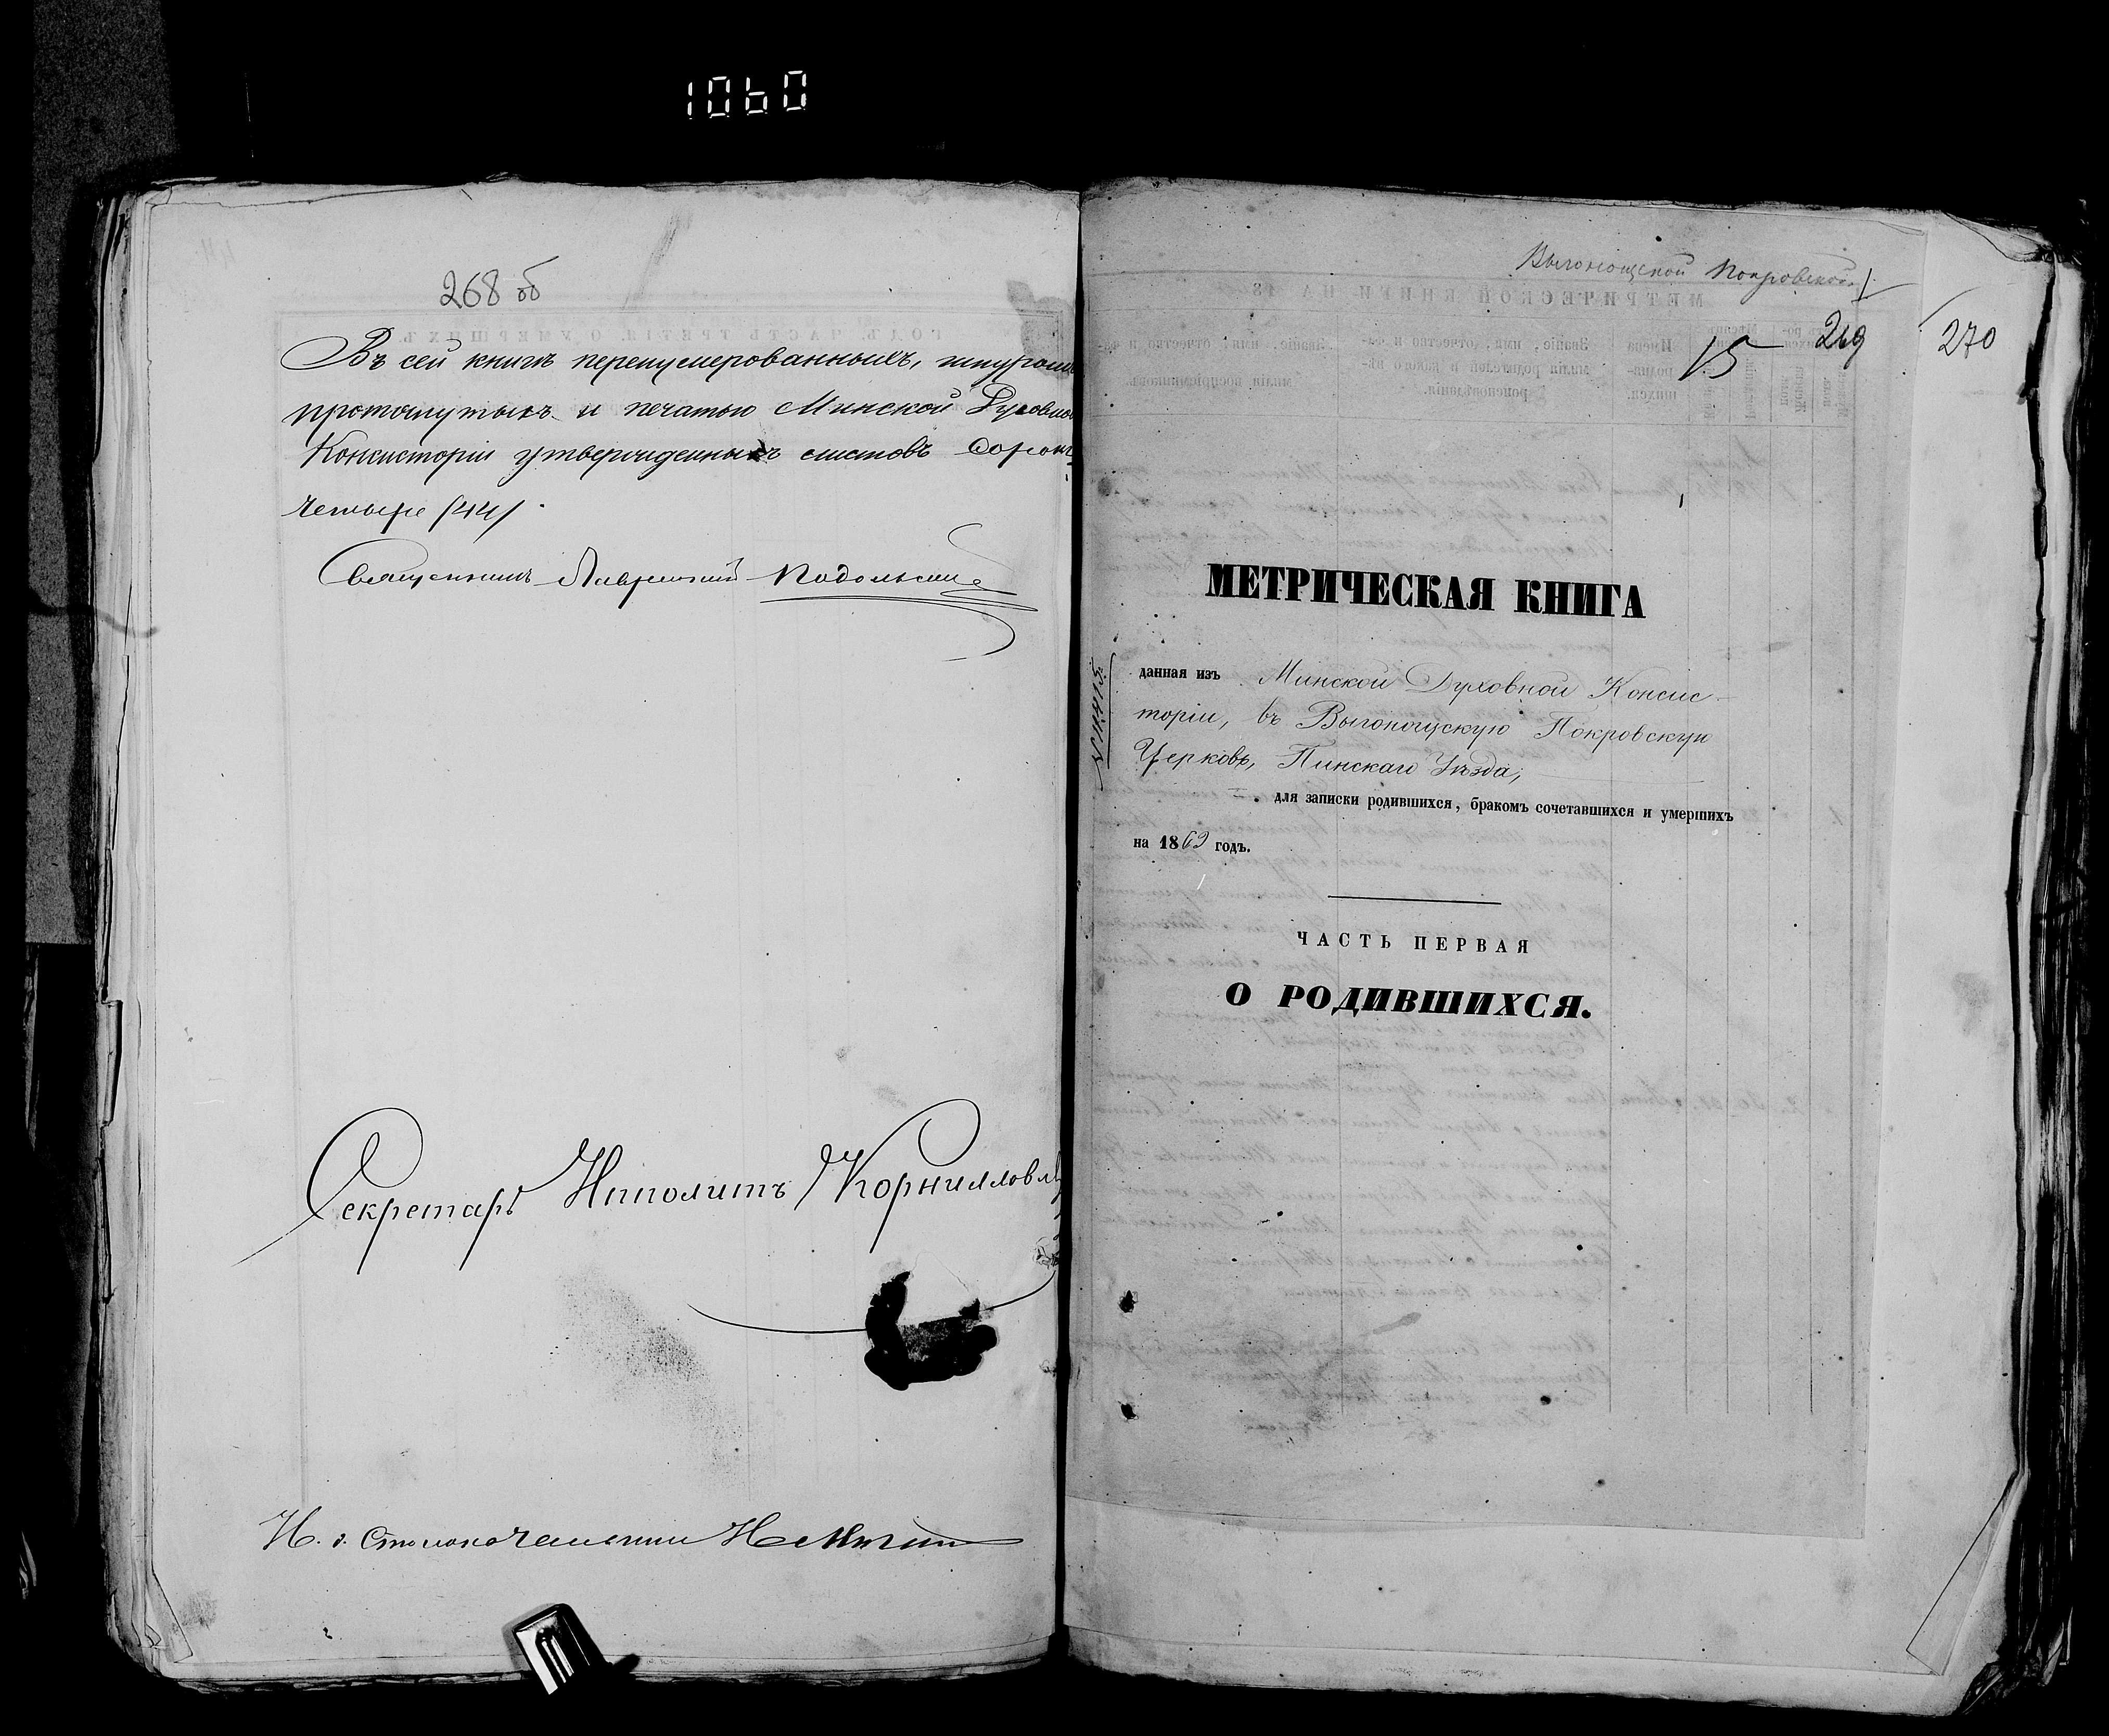 1060
268 об
Въ сей книгѣ перенумерованныхъ, шнуромъ
протянутыхъ и печатью Минской Духовной
Консисторіи утвержденныхъ листовъ сорокъ
четыре /44/.
Священникъ Лаврентій Подольскій
Секретарь Ипполитъ Корниллов
И. д. Столоначальника
Выгонощской Покровской
15
269
270
МЕТРИЧЕСКАЯ КНИГА
данная изъ Минской Духовной Консис-
торіи, въ Выгонощскую Покровскую
Церковь, Пинскаго Уѣзда,
для записки родившихся, бракомъ сочетавшихся и умершихъ
на 1869 годъ.
ЧАСТЬ ПЕРВАЯ
О РОДИВШИХСЯ.